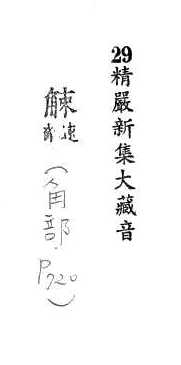 29精嚴新集大藏音
觫
速
(角部.P720)